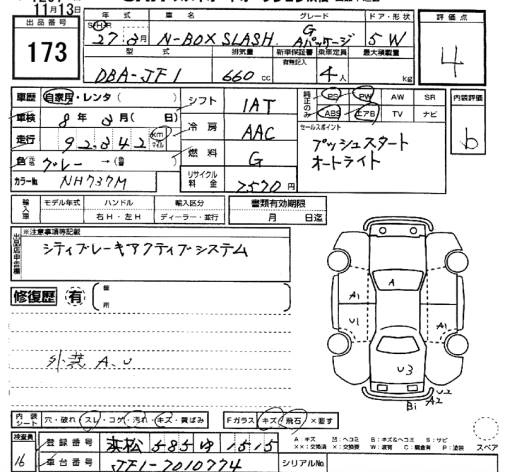 11月13日
出品番号
173
年式 車名 グレード ドア・形状
27年2月 N-BOX SLASH G Aパッケージ 5W
型式 排気量 新車保証書 乗車定員 最大積載量
有無記入
DBA-JF1 660cc 4人 kg
評価点
4
車歴 自家用・レンタ( )
車検 8年2月( 日)
走行 92,342 km マイル
色 グレー →
カラーNo. NH737M
シフト 1AT
冷房 AAC
燃料 G
リサイクル料金 7570円
純正のみ
PS PW AW SR
ABS エアB TV ナビ
セールスポイント
プッシュスタート
オートライト
内装評価
b
輸入車 モデル年式 ハンドル 輸入区分 書類有効期限
右H・左H ディーラー・並行 月 日迄
出品店申告欄
※注意事項等記載
シティブレーキアクティブシステム
修復歴 有 箇所
外装 A.U
A
A1
U1
A1
U3
U2
A2
B1
内装シート 穴・破れ スレ・コゲ・汚れ キズ・黄ばみ
Fガラス キズ 飛石 ×要す
検査員
16
登録番号 浜松 585 ゆ 1515
車台番号 JF1-7010774
シリアルNo.
A:キズ U:ヘコミ B:キズ&ヘコミ S:サビ
××:交換済 ×:要交換 W:波有 C:腐食有 P:塗装
スペア